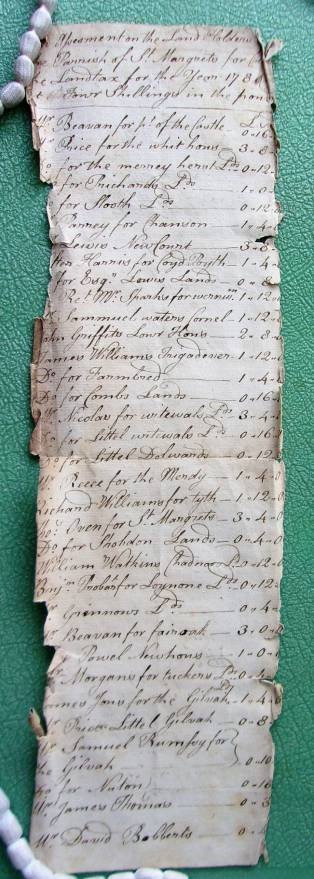 Assesment on the Land Holders
Parrish of St Margrets for
Landtax for the Year 178
Fowr Shillings in the poun
Beavan for pt of the Castle 0-16
Price for the whit hous 3-8
for the Lds 0-12
for Prichards Lds 1-0
for Slosth Lds 0-12
Parrey for Chanson 1-4
Lewis New Court 3-8
Harris for 1-4
for Esqr Lewis Lands 0-8
Revd Mr Sparks for 1-12
Sammuel waters Cornel 1-12
John Griffits Lowr Hous 2-8
James Williams 1-12
Do for 1-4
Do for Combs Lands 0-16
Nicolas for witewals Lds 3-4
for Littel witewals Ld 0-16
for Littel Delwards 0-12
Mr Reece for the Mendy 1-4-0
Richard Williams for tyth 1-12-0
Oven for St Margrets 3-4-0
Do for Sholdon Lands 0-4-0
William Watkins Lds 0-12
Benjn Probart for Loynone Lds 0-12
Grinnows Lds 0-4
Beavan for fairoak 3-0-0
Powel Newhous 1-0
Morgans for tuckers Lds 0-4
James Jons for the Gilvah 1-4-0
Price Littel Gilvah 0-8
Mr Samuel Rumsey for
the Gilvah 0-10
Do for Naton 0-16
Mr James Thomas 0-3
Mr David Robberts 0